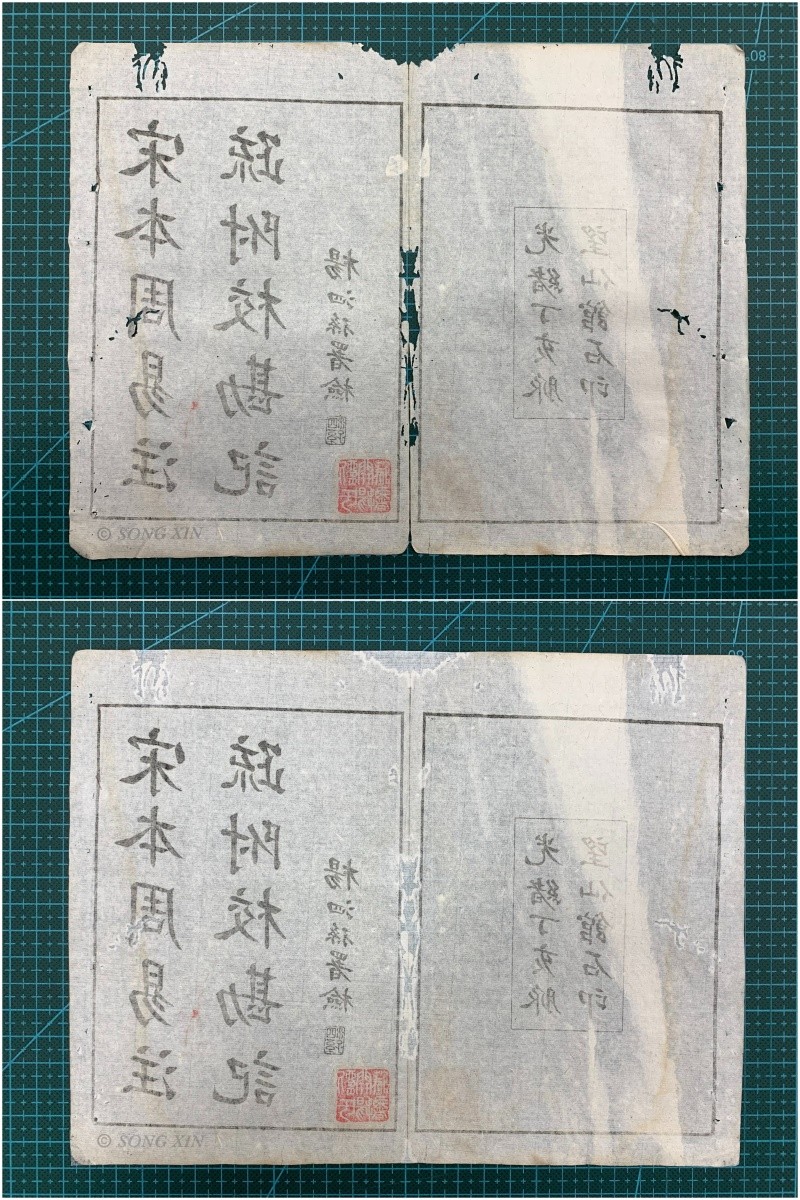 宋本周易注
疏附校勘記
楊泗孫署檢
光緒丁亥脈
望仙館石印
© SONG XIN
80°
宋本周易注
疏附校勘記
楊泗孫署檢
光緒丁亥脈
望仙館石印
© SONG XIN